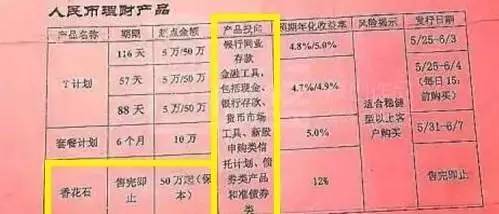 人民币理财产品
产品名称 期限 起点金额 产品投向 预期年化收益率 风险揭示 发行日期
T计划
116天 5万/50万 4.8%/5.0% 5/25-6/3
57天 5万/50万 4.7%/4.9% 5/25-6/4
(每日15:
前购买)
88天 5万/50万
套餐计划 6个月 10万 5.0% 5/31-6/7
香花石 售完即
止 50万起(保
本) 12%
银行同业
存款
金融工具,
包括现金、
银行存款、
货币市场
工具、新股
申购类信
托计划、债
券类产品
和准债券
类
适合稳健
型以上客
户购买